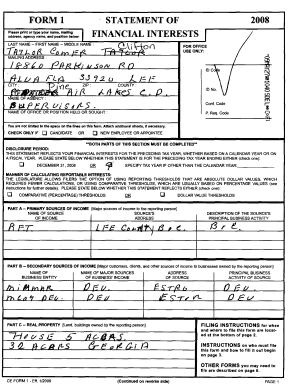 FORM 1
STATEMENT OF
2008
FINANCIAL INTERESTS
Please print or type your name, mailing address, agency name, and position below:
FOR OFFICE USE ONLY:
LAST NAME - FIRST NAME - MIDDLE NAME:
Clifton
TAYLOR COMER TAYLOR
MAILING ADDRESS:
18860 PARKINSON RD
ALVA FLA 33920 LEE
CITY: ZIP: COUNTY:
Pine AIR LAKES C.D.
NAME OF AGENCY:
SUPERVISORS.
NAME OF OFFICE OR POSITION HELD OR SOUGHT:
You are not limited to the space on the lines on this form. Attach additional sheets, if necessary.
CHECK ONLY IF CANDIDATE OR NEW EMPLOYEE OR APPOINTEE
ID Code
ID No.
Conf. Code
P. Req. Code
**BOTH PARTS OF THIS SECTION MUST BE COMPLETED**
DISCLOSURE PERIOD:
THIS STATEMENT REFLECTS YOUR FINANCIAL INTERESTS FOR THE PRECEDING TAX YEAR, WHETHER BASED ON A CALENDAR YEAR OR ON A FISCAL YEAR. PLEASE STATE BELOW WHETHER THIS STATEMENT IS FOR THE PRECEDING TAX YEAR ENDING EITHER (check one):
DECEMBER 31, 2008 OR SPECIFY TAX YEAR IF OTHER THAN THE CALENDAR YEAR:
MANNER OF CALCULATING REPORTABLE INTERESTS:
THE LEGISLATURE ALLOWS FILERS THE OPTION OF USING REPORTING THRESHOLDS THAT ARE ABSOLUTE DOLLAR VALUES, WHICH REQUIRES FEWER CALCULATIONS, OR USING COMPARATIVE THRESHOLDS, WHICH ARE USUALLY BASED ON PERCENTAGE VALUES (see instructions for further details). PLEASE STATE BELOW WHETHER THIS STATEMENT REFLECTS EITHER (check one):
COMPARATIVE (PERCENTAGE) THRESHOLDS OR DOLLAR VALUE THRESHOLDS
PART A -- PRIMARY SOURCES OF INCOME [Major sources of income to the reporting person]
NAME OF SOURCE OF INCOME
SOURCE'S ADDRESS
DESCRIPTION OF THE SOURCE'S PRINCIPAL BUSINESS ACTIVITY
RET LEE COUNTY
PART B -- SECONDARY SOURCES OF INCOME [Major customers, clients, and other sources of income to businesses owned by the reporting person]
NAME OF BUSINESS ENTITY
NAME OF MAJOR SOURCES OF BUSINESS' INCOME
ADDRESS OF SOURCE
PRINCIPAL BUSINESS ACTIVITY OF SOURCE
MIRMAR DEV. ESTRO DEV.
DEV. DEV
PART C -- REAL PROPERTY [Land, buildings owned by the reporting person]
HOUSE 5 ACRES
32 ACRES GEORGIA
FILING INSTRUCTIONS for when and where to file this form are located at the bottom of page 2.
INSTRUCTIONS on who must file this form and how to fill it out begin on page 3.
OTHER FORMS you may need to file are described on page 6.
CE FORM 1 - Eff. 1/2009
(Continued on reverse side)
PAGE 1